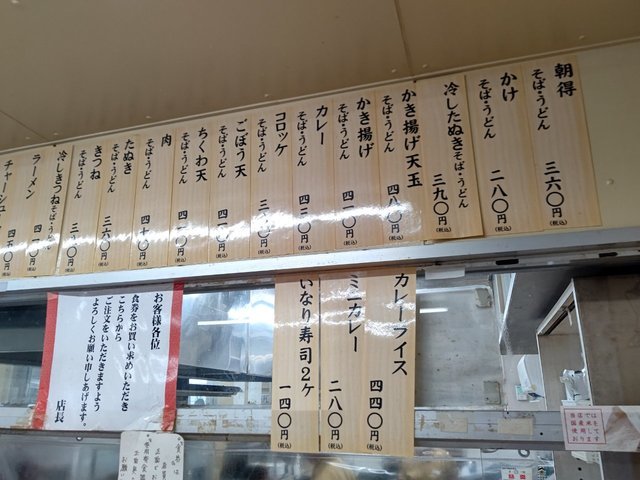 朝得
そば・うどん
三六〇円
(税込)
かけ
そば・うどん
二八〇円
(税込)
冷したぬきそば・うどん
三九〇円
(税込)
かき揚げ天玉
そば・うどん
四八〇円
(税込)
かき揚げ
そば・うどん
円
(税込)
カレー
そば・うどん
円
(税込)
コロッケ
そば・うどん
円
(税込)
ごぼう天
そば・うどん
円
(税込)
ちくわ天
そば・うどん
円
(税込)
肉
そば・うどん
円
(税込)
たぬき
そば・うどん
三六〇円
(税込)
きつね
そば・うどん
円
(税込)
冷しきつねそば・うどん
円
(税込)
ラーメン
円
(税込)
チャーシュー
四五〇円
(税込)
カレーライス
四四〇円
(税込)
ミニカレー
二八〇円
(税込)
いなり寿司2ヶ
一四〇円
(税込)
お客様各位
食券をお買い求めいただき
こちらから
ご注文をいただきますよう
よろしくお願い申しあげます。
店長
当店では
国産米を
使用して
おります